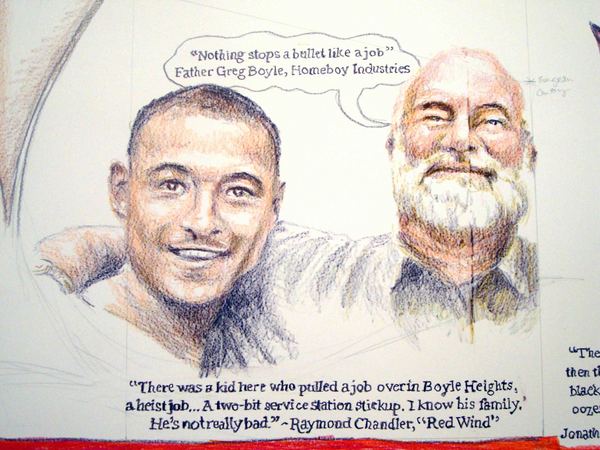 "Nothing stops a bullet like a job"
Father Greg Boyle, Homeboy Industries
"There was a kid here who pulled a job over in Boyle Heights,
a heist job... A two-bit service station stickup. I know his family.
He's not really bad." ~Raymond Chandler, "Red Wind"
"The
then th
black
ooze
Jonath